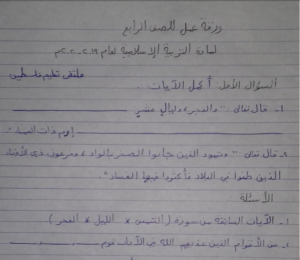 ورقة عمل للصف الرابع
لمادة التربية الإسلامية لعام ٢٠١٩-٢٠٢٠م
ملتقى تعليم فلسطين
السؤال الأول: أكمل الآيات.
١- قال تعالى: " والفجر، وليالٍ عشرٍ
إرم ذات العماد
٢- قال تعالى " وثمود الذين جابوا الصخر بالواد، وفرعون ذي الأوتاد
الذين طغوا في البلاد فأكثروا فيها الفساد".
الأسئلة
١- الآيات السابقة من سورة ( الشمس * الليل * الفجر )
٢- من الأقوام الذين عذبهم الله في الآيات قوم